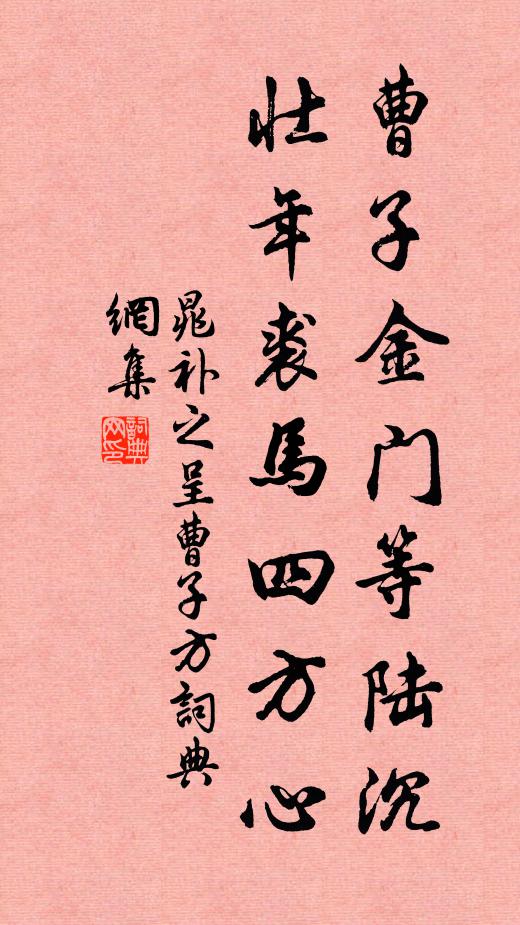 曹子金门等陆沉
壮年裘馬四方心
晁补之呈曹子方詞典
網集
詞典网印